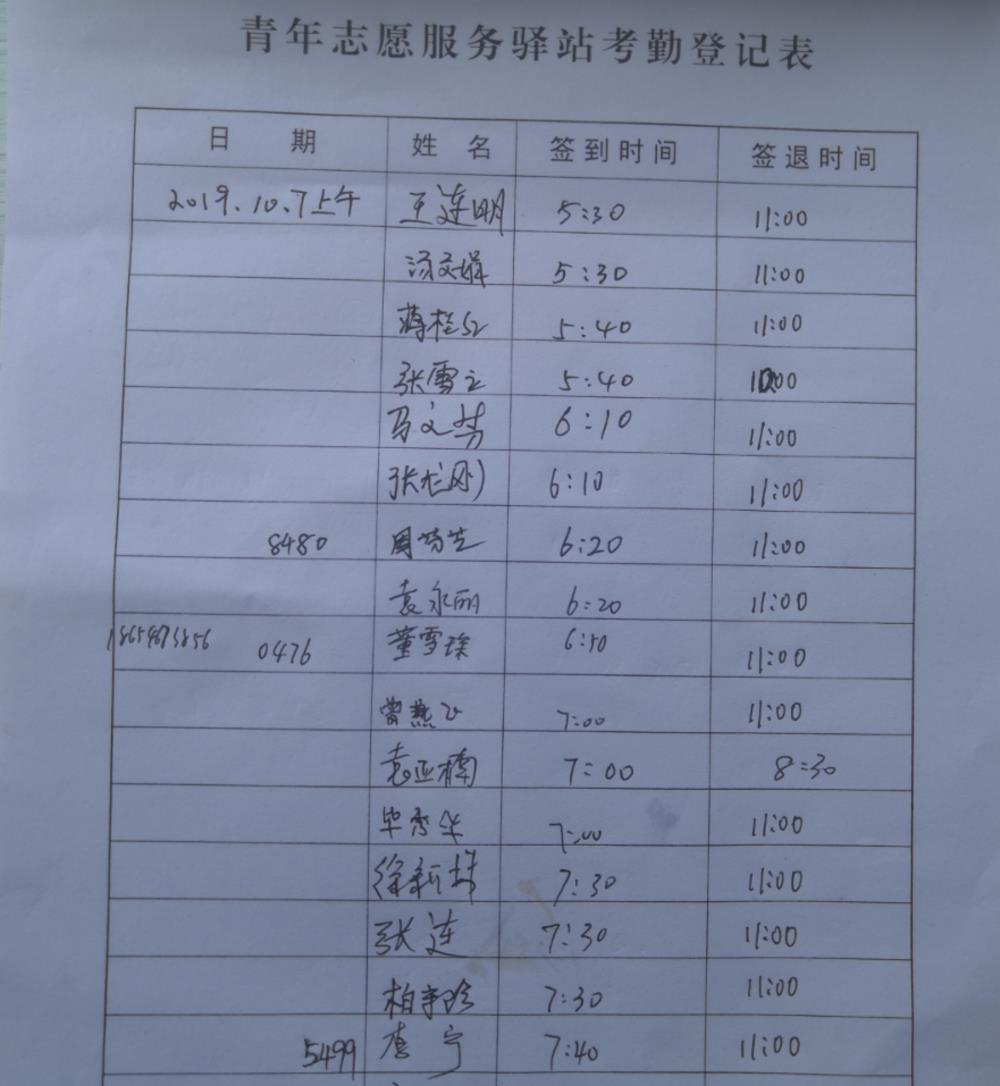 青年志愿服务驿站考勤登记表
日 期 姓 名 签到时间 签退时间
2019.10.7上午 王连明 5:30 11:00
汤文娟 5:30 11:00
蒋桂红 5:40 11:00
张雪 5:40
马文芳 6:10 11:00
张龙刚 6:10 11:00
8480 周 6:20 11:00
袁永丽 6:20 11:00
0476 董雪 6:50 11:00
曾燕飞 7:00 11:00
袁亚楠 7:00 8:30
毕秀华 7:00 11:00
徐新 7:30 11:00
张莲 7:30 11:00
柏 7:30 11:00
5499 李宁 7:40 11:00